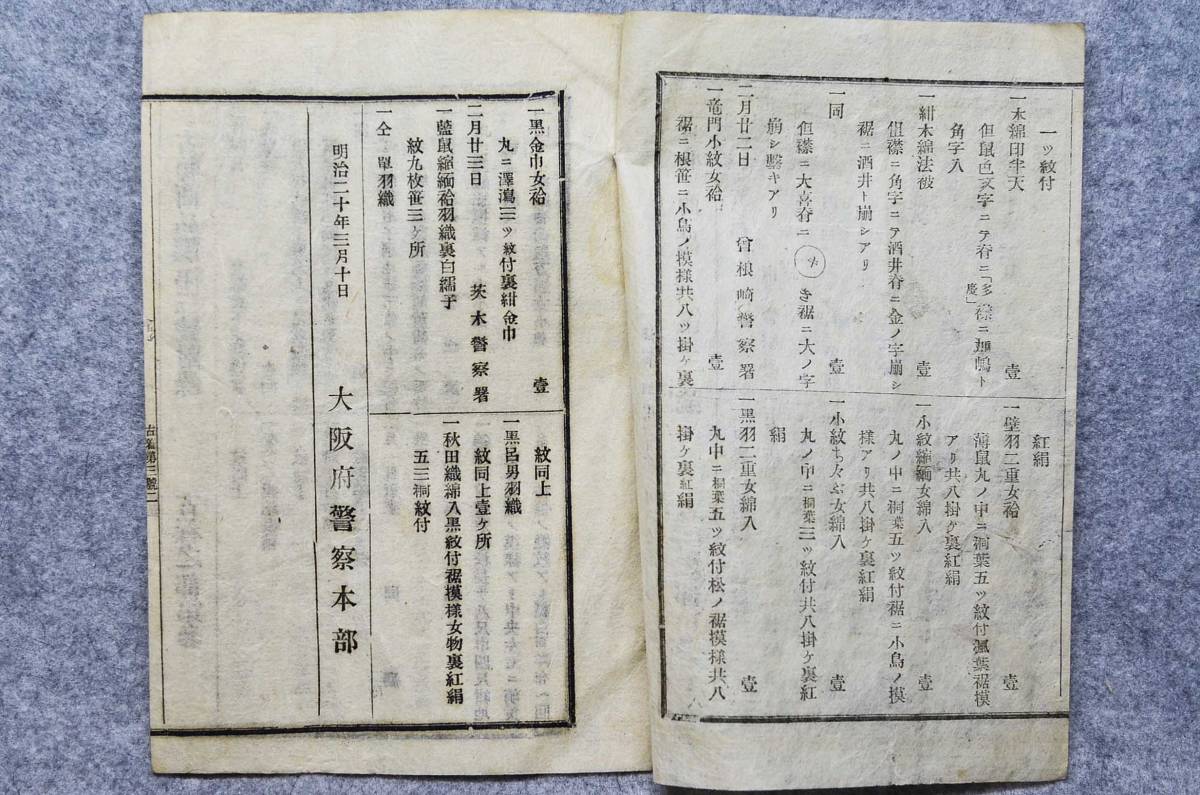 一ッ紋付
一木綿印半天 壹
但鼠色文字ニテ脊ニ「多慶」襟ニ加嶋ト
角字入
一紺木綿法被 壹
但襟ニ角字ニテ酒井脊ニ金ノ字崩シ
裾ニ酒井ト崩シアリ
一同 壹
但襟ニ大喜脊ニ き裾ニ大ノ字
崩シ繋キアリ
二月廿二日 曾根崎警察署
一竜門小紋女袷 壹
裾ニ根笹ニ小鳥ノ模様共八ツ掛ケ裏
紅絹
一壁羽二重女袷 壹
薄鼠丸ノ中ニ桐葉五ツ紋付楓葉裾摸
アリ共八掛ケ裏紅絹
一小紋縮緬女綿入 壹
丸ノ中ニ桐葉五ツ紋付裾ニ小鳥ノ摸
様アリ共八掛ケ裏紅絹
一小紋ちゝぶ女綿入 壹
丸ノ中ニ桐葉三ツ紋付共八掛ケ裏紅
絹
一黒羽二重女綿入 壹
丸中ニ桐葉五ツ紋付松ノ裾摸様共八
掛ケ裏紅絹
一黒金巾女袷 壹
丸ニ澤瀉三ツ紋付裏紺金巾
二月廿三日 茨木警察署
一藍鼠縮緬袷羽織裏白繻子
紋九枚笹三ケ所
一仝 單羽織
紋同上
一黒呂男羽織
紋同上壹ケ所
一秋田織綿入黒紋付裾摸様女物裏紅絹
五三桐紋付
明治二十年三月十日
大阪府警察本部